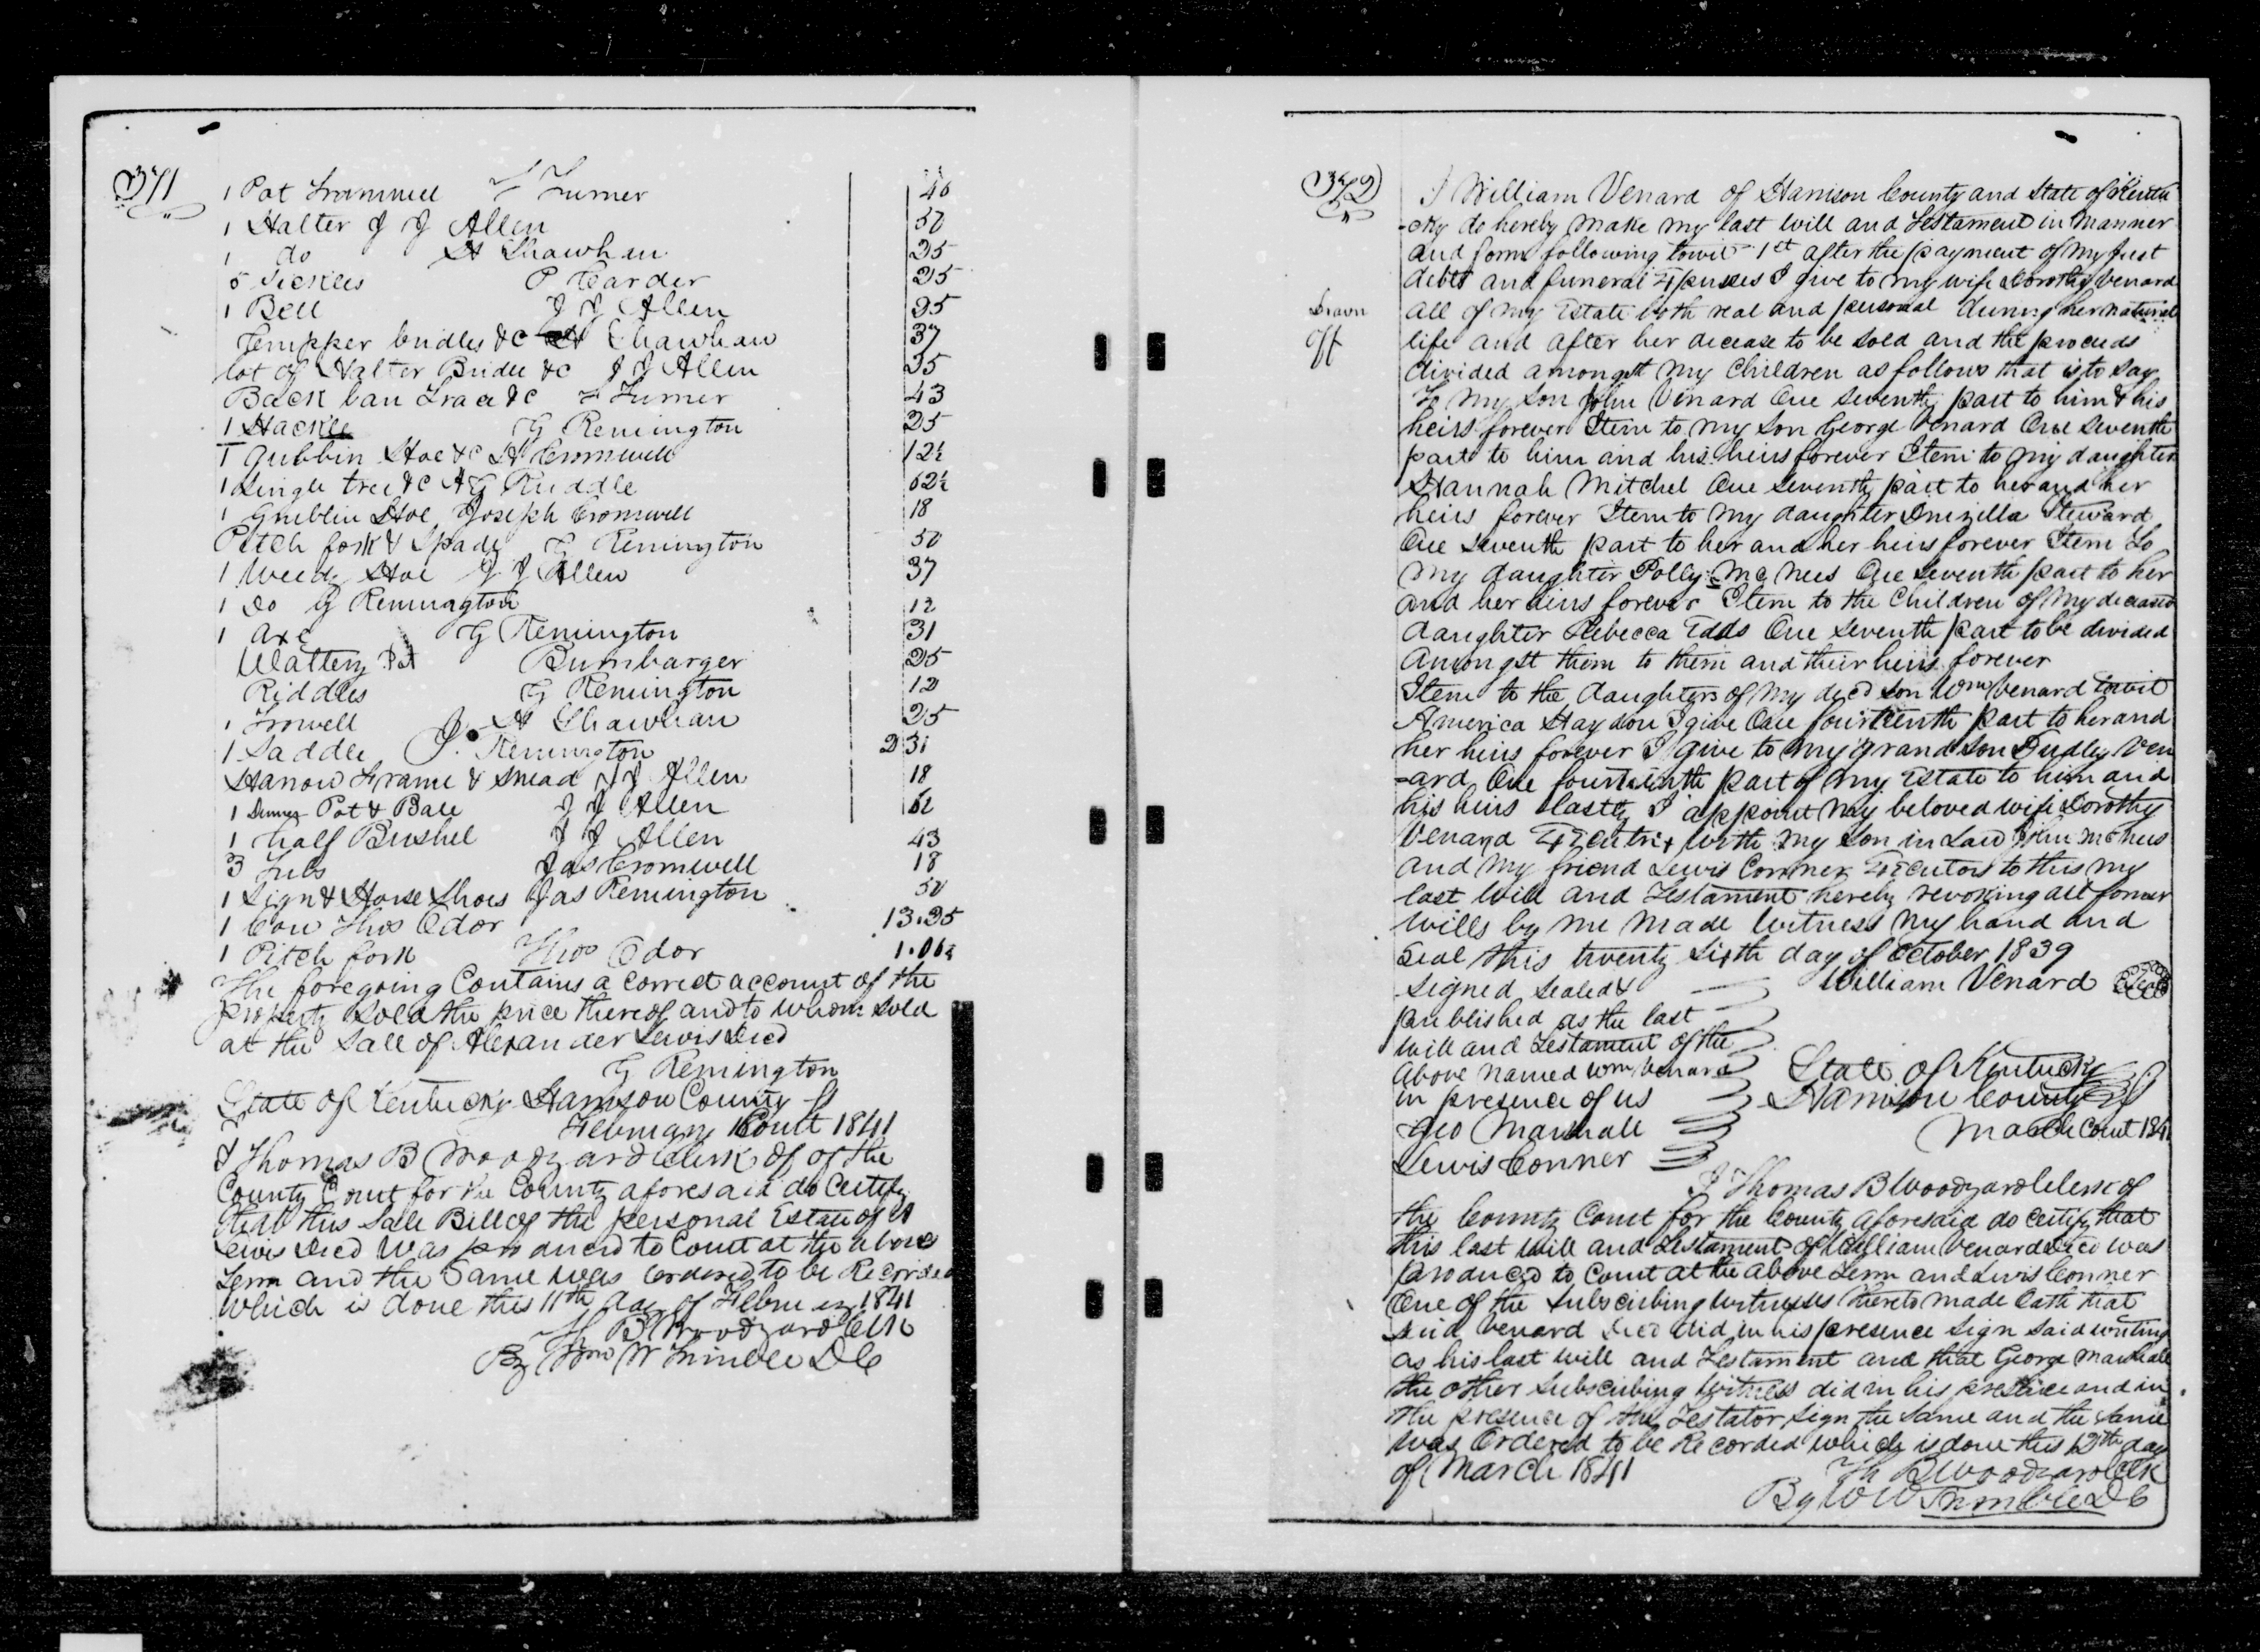 371
1 Pot Trammell F Turner 40
1 Halter J J Allen 50
1 do H Shawhan 25
5 Sickles P Carder 25
1 Bell J J Allen 25
bridles &c Shawhan 37
lot of Halter Bridle &c J J Allen 25
Back ban Trace &c F Turner 43
1 Hackle G Remington 25
1 Grubbin Hoe &c H Cromwell 12½
1 Single tree &c A G Ruddle 62½
1 Grubbin Hoe Joseph Cromwell 18
Pitch fork & Spade G Remington 50
1 Weedg Hoe J J Allen 37
1 Do G Remington 12
1 Axe G Remington 31
Wattery Pot Bumbarger 25
Riddles G Remington 12
1 Trowell H Shawhan 25
1 Saddle J. Remington 2 31
Harrow Frame & Snead J J Allen 18
1 Dinner Pot & Bale J J Allen 62
1 half Bushel J J Allen 43
3 Tubs Jas Cromwell 18
1 Sign & Horse Shoes Jas Remington 50
1 Cow Thos Odor 13.25
1 Pitch fork Thos Odor 1.06¼
The foregoing Contains a correct account of the
property sold the price thereof and to whom sold
at the Sale of Alexander Lewis Decd
G Remington
State of Kentucky Harrison County Sct
February Court 1841
I Thomas B Woodyard Clerk of of the
County Court for the County aforesaid do Certify
that this Sale Bill of the personal Estate of A
Lewis Decd was produced to Court at the above
Term and the Same was ordered to be Recorded
Which is done this 11th day of February 1841
Th B Woodyard Clk
By Wm W Trimble D C
372
I William Venard of Harrison County and State of Kentu
-cky do hereby make my last will and Testament in Manner
and form following towit 1st after the payment of my Just
debts and funeral Expenses I give to my wife Dorothy Venard
Drawn all of my Estate both real and personal during her natural
off life and after her decease to be sold and the proceeds
divided amongst my Children as follows that is to say
To my Son John Venard One seventh part to him & his
heirs forever Item to my Son George Venard One seventh
part to him and his heirs forever Item to my daughter
Hannah Mitchel One seventh part to her and her
heirs forever Item to my daughter Druzilla Steward
One seventh part to her and her heirs forever Item to
my daughter Polly McNees One seventh part to her
and her heirs forever Item to the Children of my deceased
daughter Rebecca Eads One seventh part to be divided
amongst them to them and their heirs forever
Item to the daughters of my decd son Wm Venard towit
America Haydon I give One fourteenth part to her and
her heirs forever I give to my grand Son Dudley Ven
-ard One fourteenth part of my Estate to him and
his heirs lastly I appoint my beloved wife Dorothy
Venard Executrix with my Son in Law John McNees
and my friend Lewis Conner Executors to this my
last Will and Testament hereby revoking all former
wills by me made Witness my hand and
Seal this twenty sixth day of October 1839
Signed Sealed & William Venard Seal
published as the last
Will and Testament of the
above named Wm Venard State of Kentucky
in presence of us Harrison County Sct
Geo Marshall March Court 1841
Lewis Conner
I Thomas B Woodyard Clerk of
the County Court for the County aforesaid do Certify that
this last Will and Testament of William Venard Decd was
produced to Court at the above Term and Lewis Conner
One of the Subscribing witnesses thereto made Oath that
said Venard Decd did in his presence Sign said writing
as his last Will and Testament and that George Marshall
the other Subscribing Witness did in his presence and in
the presence of the Testator sign the Same and the same
was Ordered to be Recorded which is done this 12th day
of March 1841 Th B Woodyard Clk
By W W Trimble D C